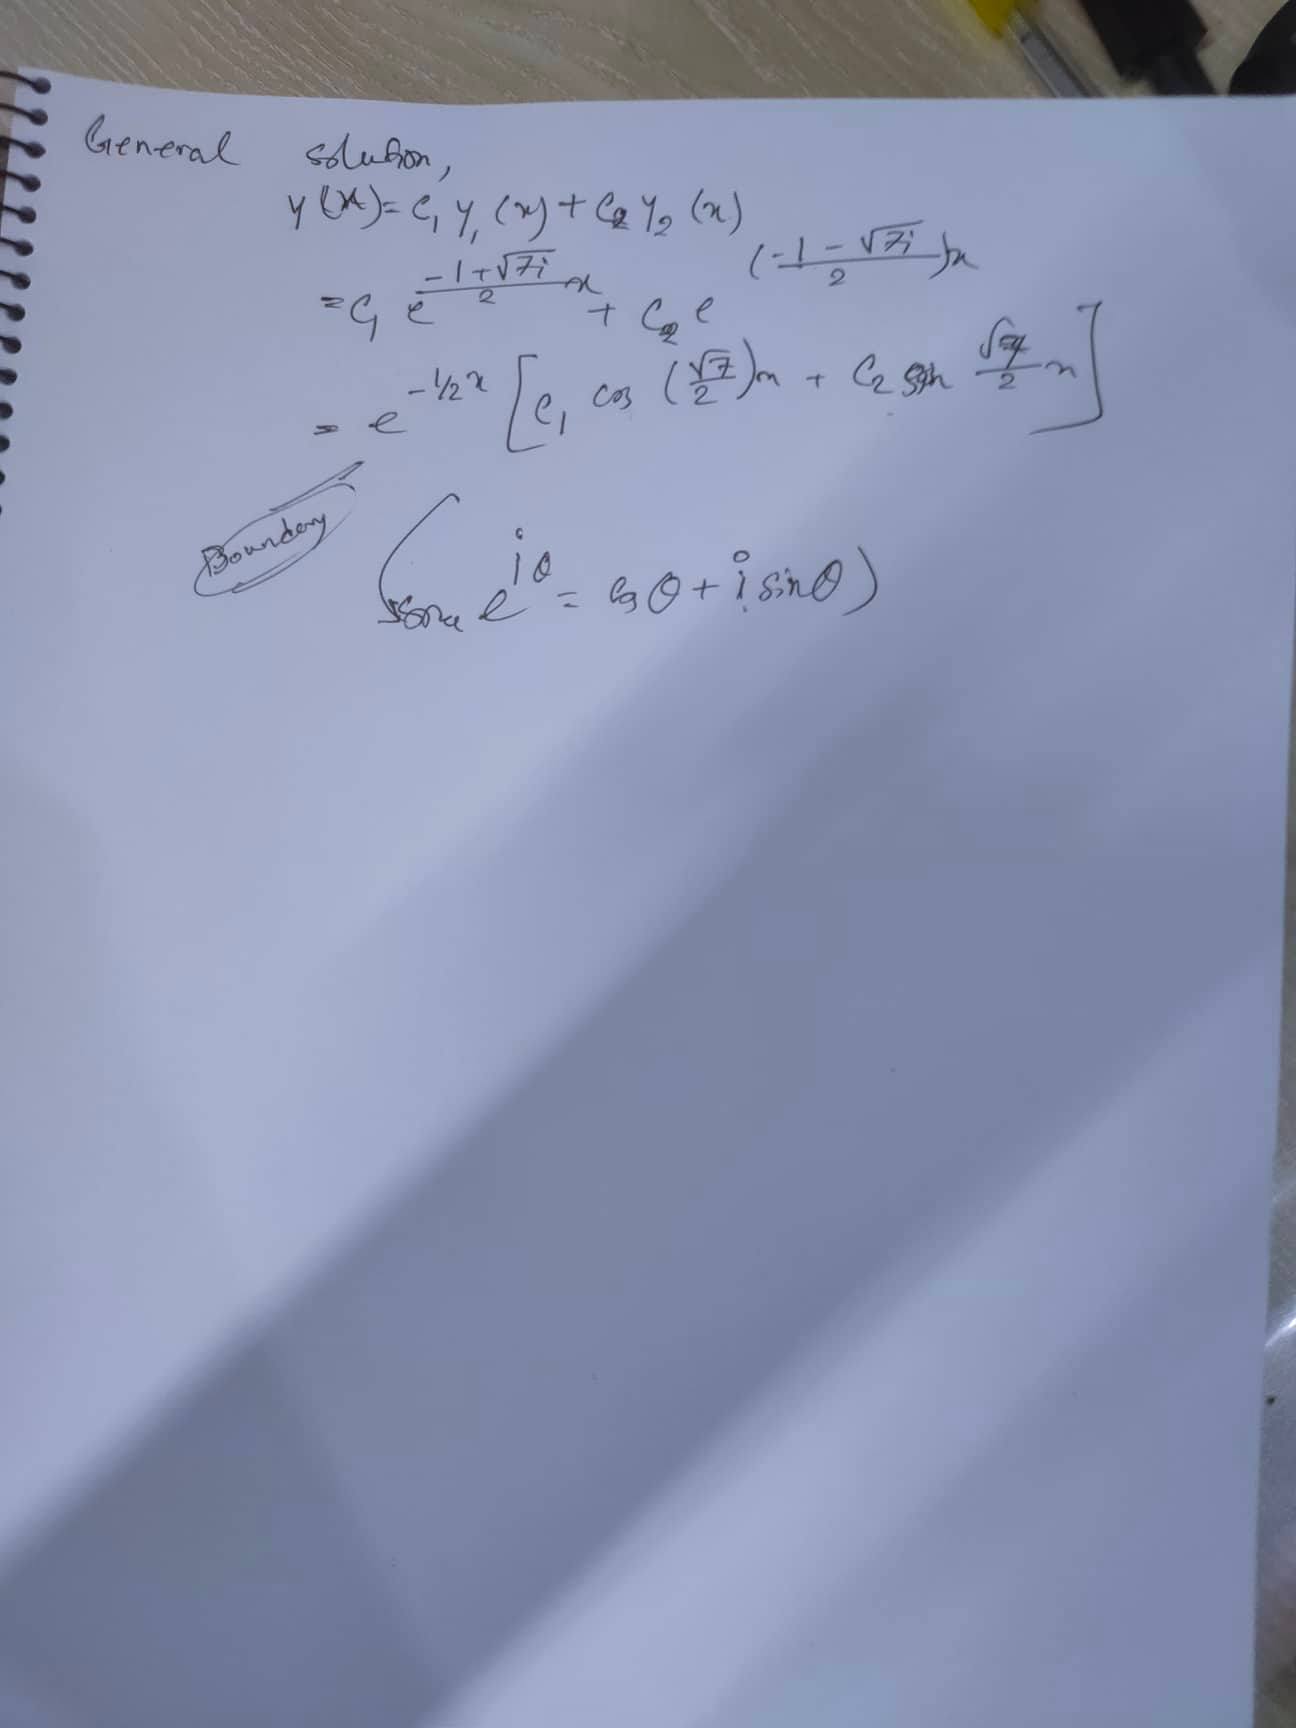 General solution,
y(x) = c₁ y₁ (x) + c₂ y₂ (x)
= c₁ e^{\frac{-1+√7i}{2} x} + c₂ e^{(\frac{-1-√7i}{2})x}
= e^{-1/2 x} [c₁ cos (\frac{√7}{2})x + c₂ sin \frac{√7}{2} x]
Boundary
( e^{iθ} = cos θ + i sin θ)